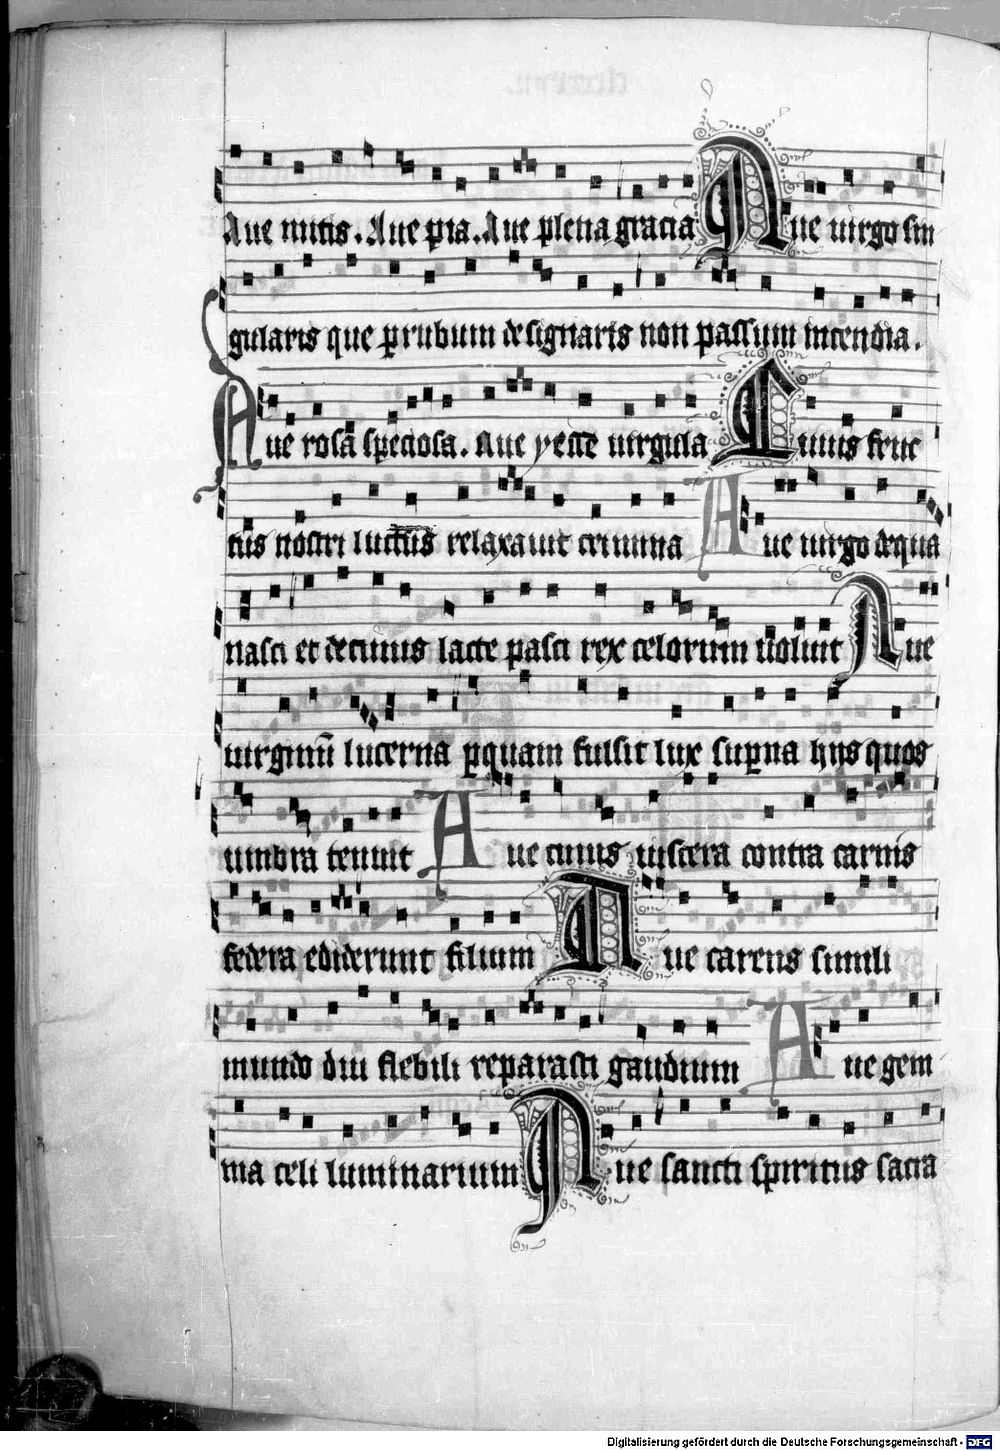 Aue mitis. Aue pia. Aue plena gracia Aue uirgo sin
gularis que p rubum designaris non passum incendia.
Aue rosa speciosa. Aue yesse uirgula Cuius fruc
tus nostri luctus relaxauit crimina Aue uirgo de qua
nasci et de cuius lacte pasci rex celorum uoluit Aue
uirginū lucerna p quam fulsit lux supna hijs quos
umbra tenuit Aue cuius uiscera contra carnis
federa ediderunt filium Aue carens simili
mundo diu flebili reparasti gaudium Aue gem
ma celi luminarium Aue sancti spiritus sacra
Digitalisierung gefördert durch die Deutsche Forschungsgemeinschaft - DFG